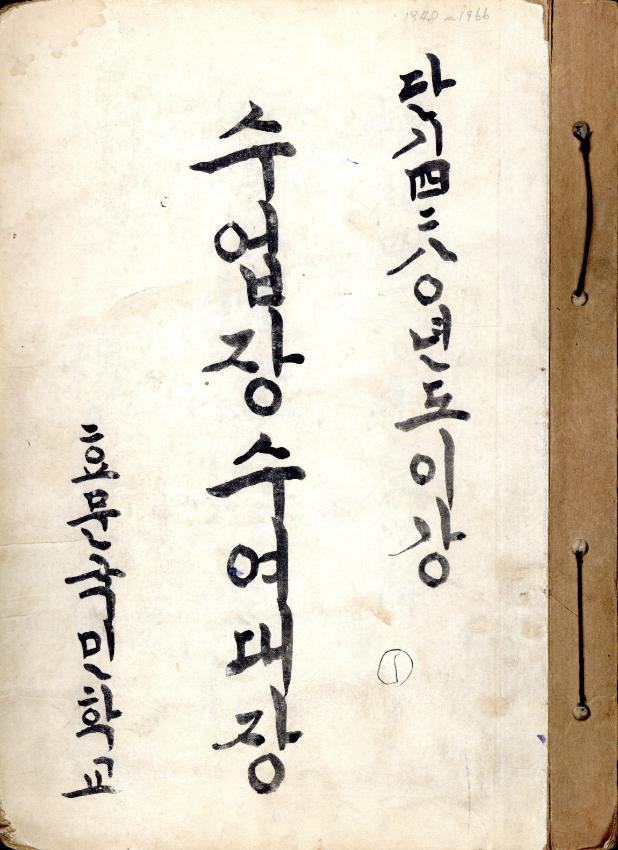 1948~1966
단기四二八〇년도이강
①
수업장수여대장
효문국민학교